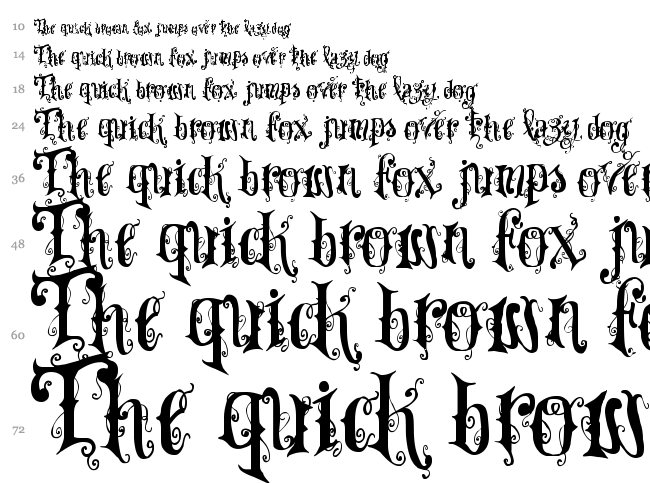 10 The quick brown fox jumps over the lazy dog
14 The quick brown fox jumps over the lazy dog
18 The quick brown fox jumps over the lazy dog
24 The quick brown fox jumps over the lazy dog
36 The quick brown fox jumps over
48 The quick brown fox ju
60 The quick brown fo
72 The quick brow